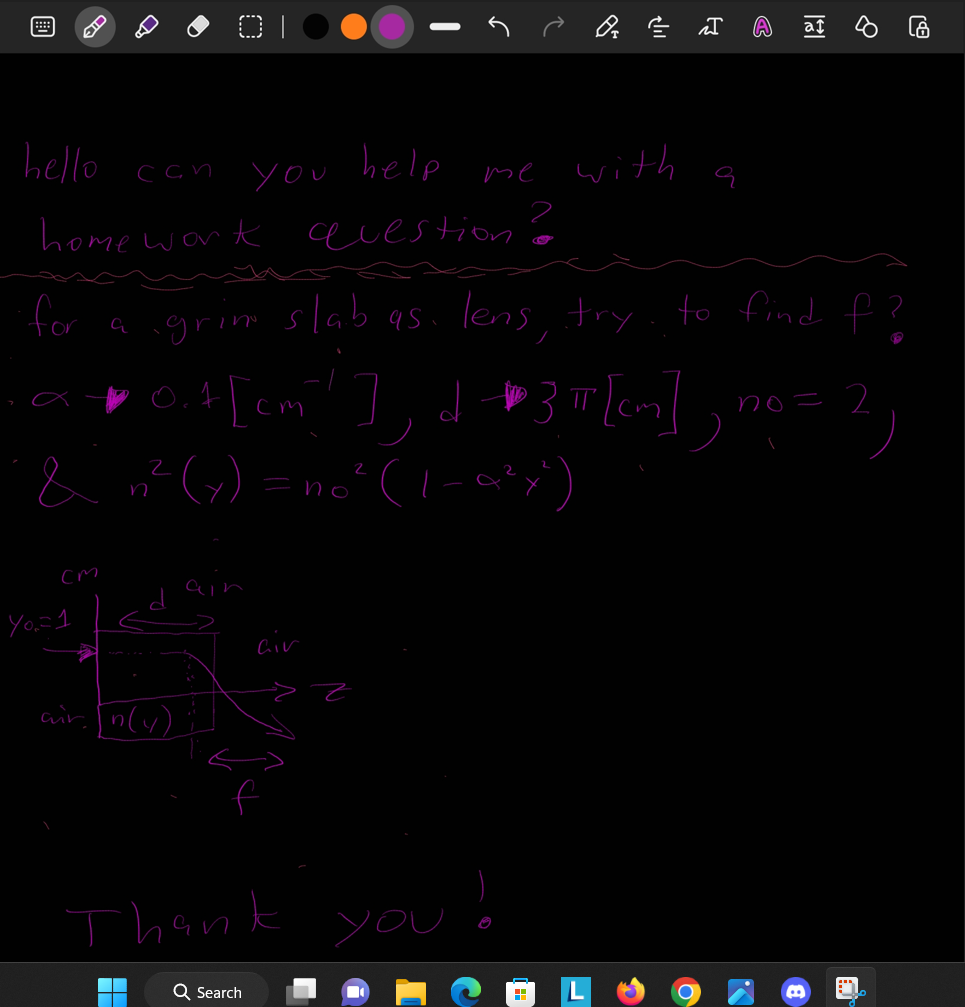 hello can you help me with a
homework question?
for a grin slab as lens, try to find f?
α → 0.1 [cm⁻¹], d → 3π [cm], no = 2,
& n²(y) = no²(1 - α²y²)
cm
air
d
yo = 1
air
z
air
n(y)
f
Thank you!
Search